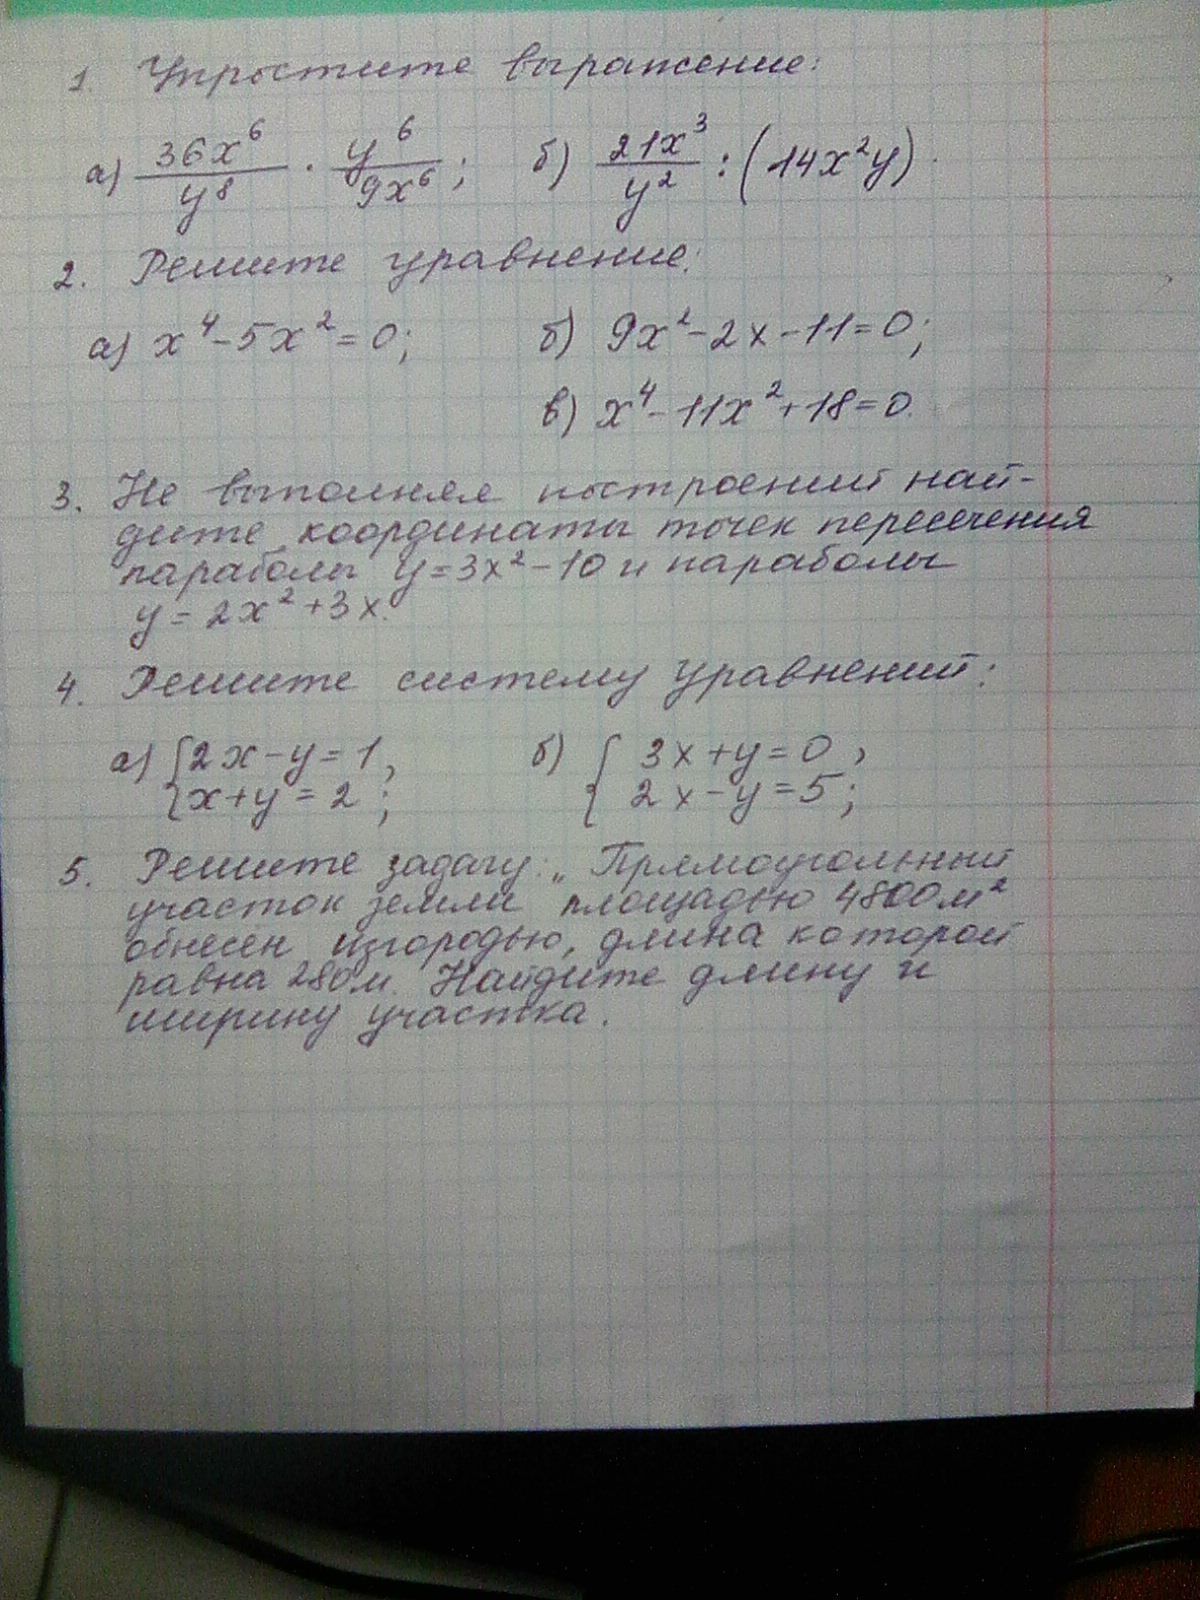 1. Упростите выражение:
а) 36x⁶/y⁸ · y⁶/9x⁶; б) 21x³/y² : (14x²y).
2. Решите уравнение:
а) x⁴-5x²=0; б) 9x²-2x-11=0;
в) x⁴-11x²+18=0.
3. Не выполняя построений най-
дите координаты точек пересечения
параболы y=3x²-10 и параболы
y=2x²+3x.
4. Решите систему уравнений:
а) {2x-y=1, б) { 3x+y=0,
x+y=2; 2x-y=5;
5. Решите задачу: „Прямоугольный
участок земли площадью 4800м²
обнесён изгородью, длина которой
равна 280м. Найдите длину и
ширину участка.